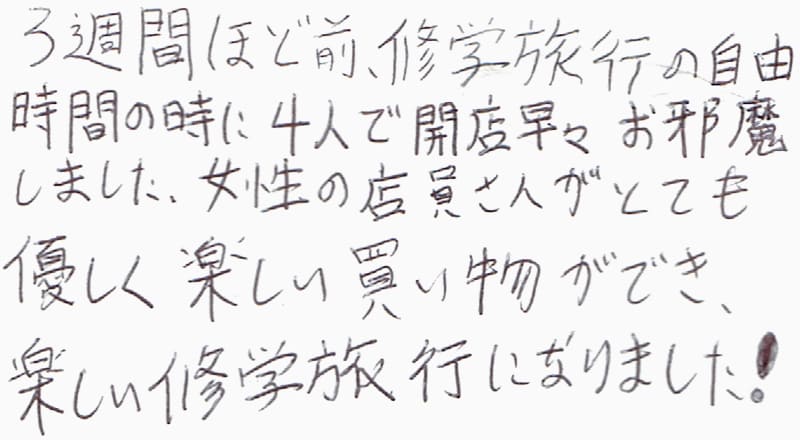 3週間ほど前、修学旅行の自由
時間の時に4人で開店早々お邪魔
しました、女性の店員さんがとても
優しく楽しい買い物ができ、
楽しい修学旅行になりました!